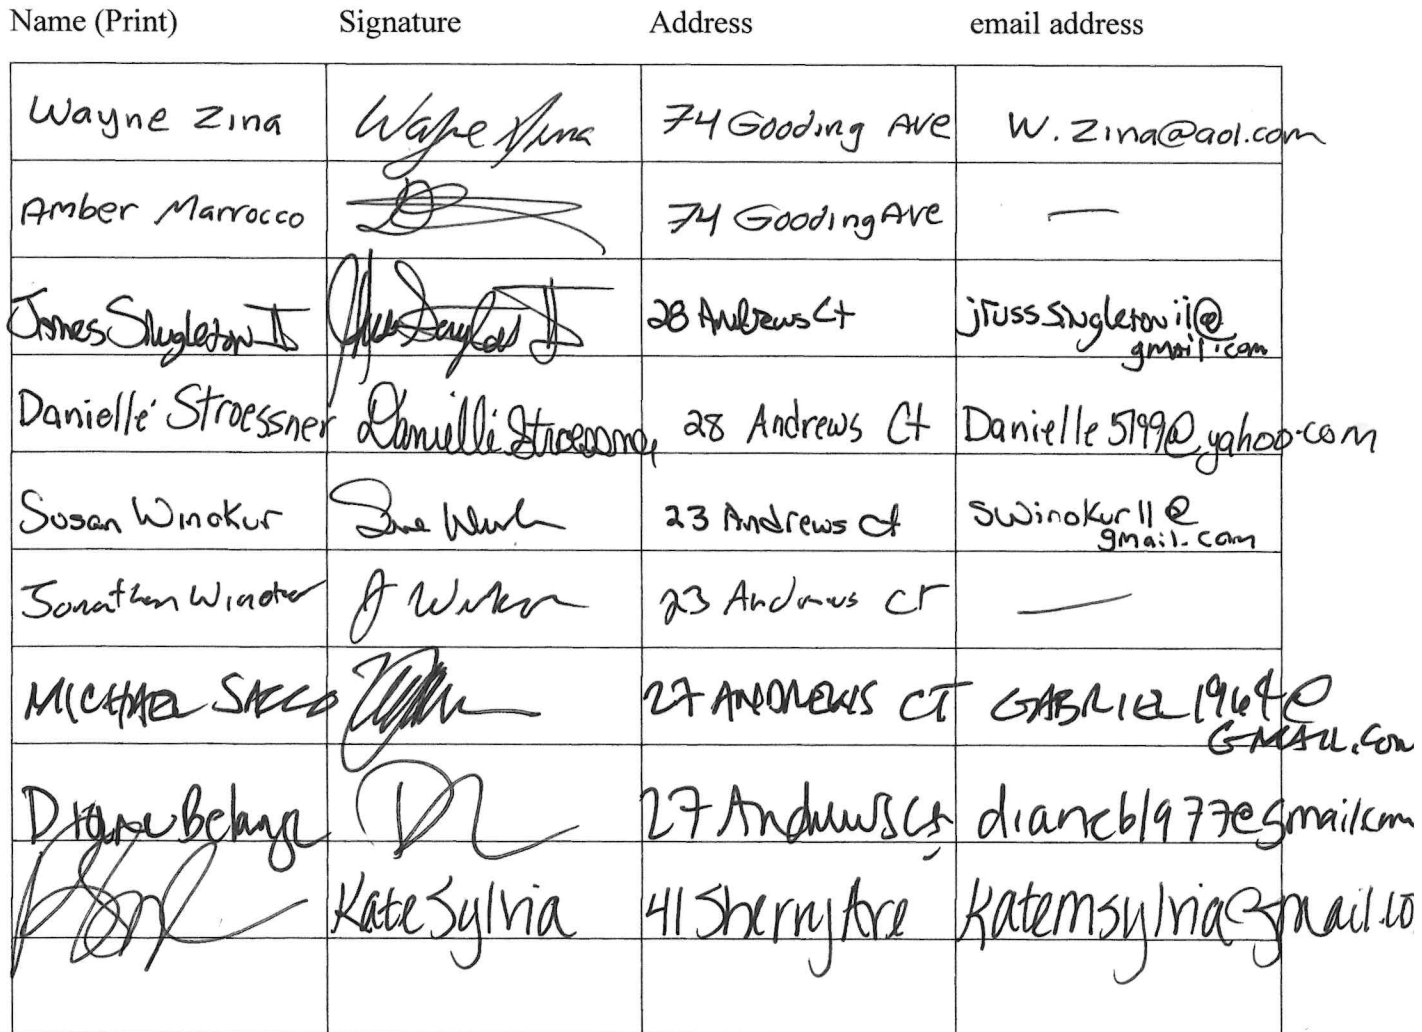 Name (Print) Signature Address email address
Wayne Zina Wayne Zina 74 Gooding Ave W.Zina@aol.com
Amber Marrocco 74 Gooding Ave —
James Singleton II 28 Andrews Ct jrusssingletonii@
gmail.com
Danielle Stroessner Danielle Stroessner 28 Andrews Ct Danielle5199@yahoo.com
Susan Winokur 23 Andrews Ct swinokur11@
gmail.com
Jonathan Winokur J Winokur 23 Andrews CT —
MICHAEL SACCO 27 ANDREWS CT GABRIEL1964@
GMAIL.COM
Diane Belanger 27 Andrews Ct dianeb1977@gmail.com
Kate Sylvia 41 Sherry Ave katemsylvia@gmail.co